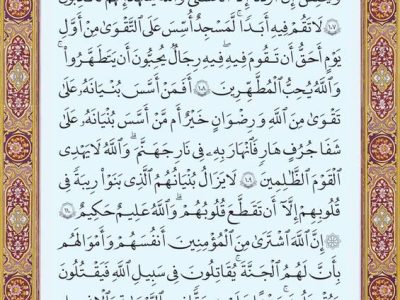 ۝١٠٧ لَا تَقُمْ فِيهِ أَبَدًا ۚ لَّمَسْجِدٌ أُسِّسَ عَلَى ٱلتَّقْوَىٰ مِنْ أَوَّلِ
يَوْمٍ أَحَقُّ أَن تَقُومَ فِيهِ ۚ فِيهِ رِجَالٌ يُحِبُّونَ أَن يَتَطَهَّرُوا۟ ۚ
وَٱللَّهُ يُحِبُّ ٱلْمُطَّهِّرِينَ ۝١٠٨ أَفَمَنْ أَسَّسَ بُنْيَـٰنَهُۥ عَلَىٰ
تَقْوَىٰ مِنَ ٱللَّهِ وَرِضْوَٰنٍ خَيْرٌ أَم مَّنْ أَسَّسَ بُنْيَـٰنَهُۥ عَلَىٰ
شَفَا جُرُفٍ هَارٍ فَٱنْهَارَ بِهِۦ فِى نَارِ جَهَنَّمَ ۗ وَٱللَّهُ لَا يَهْدِى
ٱلْقَوْمَ ٱلظَّـٰلِمِينَ ۝١٠٩ لَا يَزَالُ بُنْيَـٰنُهُمُ ٱلَّذِى بَنَوْا۟ رِيبَةً فِى
قُلُوبِهِمْ إِلَّآ أَن تَقَطَّعَ قُلُوبُهُمْ ۗ وَٱللَّهُ عَلِيمٌ حَكِيمٌ ۝١١٠
۞ إِنَّ ٱللَّهَ ٱشْتَرَىٰ مِنَ ٱلْمُؤْمِنِينَ أَنفُسَهُمْ وَأَمْوَٰلَهُم
بِأَنَّ لَهُمُ ٱلْجَنَّةَ ۚ يُقَـٰتِلُونَ فِى سَبِيلِ ٱللَّهِ فَيَقْتُلُونَ